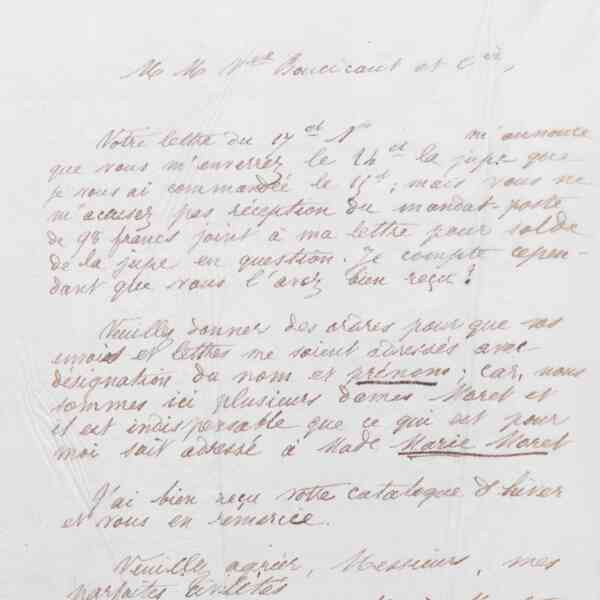 M M Vve Boucicaut et Cie,
Votre lettre du 17 ct N° m'annonce
que vous m'enverrez le 24 ct la jupe que
je vous ai commandée le 15 ct; mais vous ne
m'accusez pas réception du mandat-poste
de 98 francs joint à ma lettre pour solde
de la jupe en question. Je compte cepen-
dant que vous l'avez bien reçu?
Veuillez donner des ordres pour que vos
envois et lettres me soient adressés avec
désignation du nom et prénoms; car, nous
sommes ici plusieurs dames Moret et
il est indispensable que ce qui est pour
moi soit adressé à Made Marie Moret
J'ai bien reçu votre catalogue d'hiver
et vous en remercie.
Veuillez agréer, Messieurs, mes
parfaites civilités